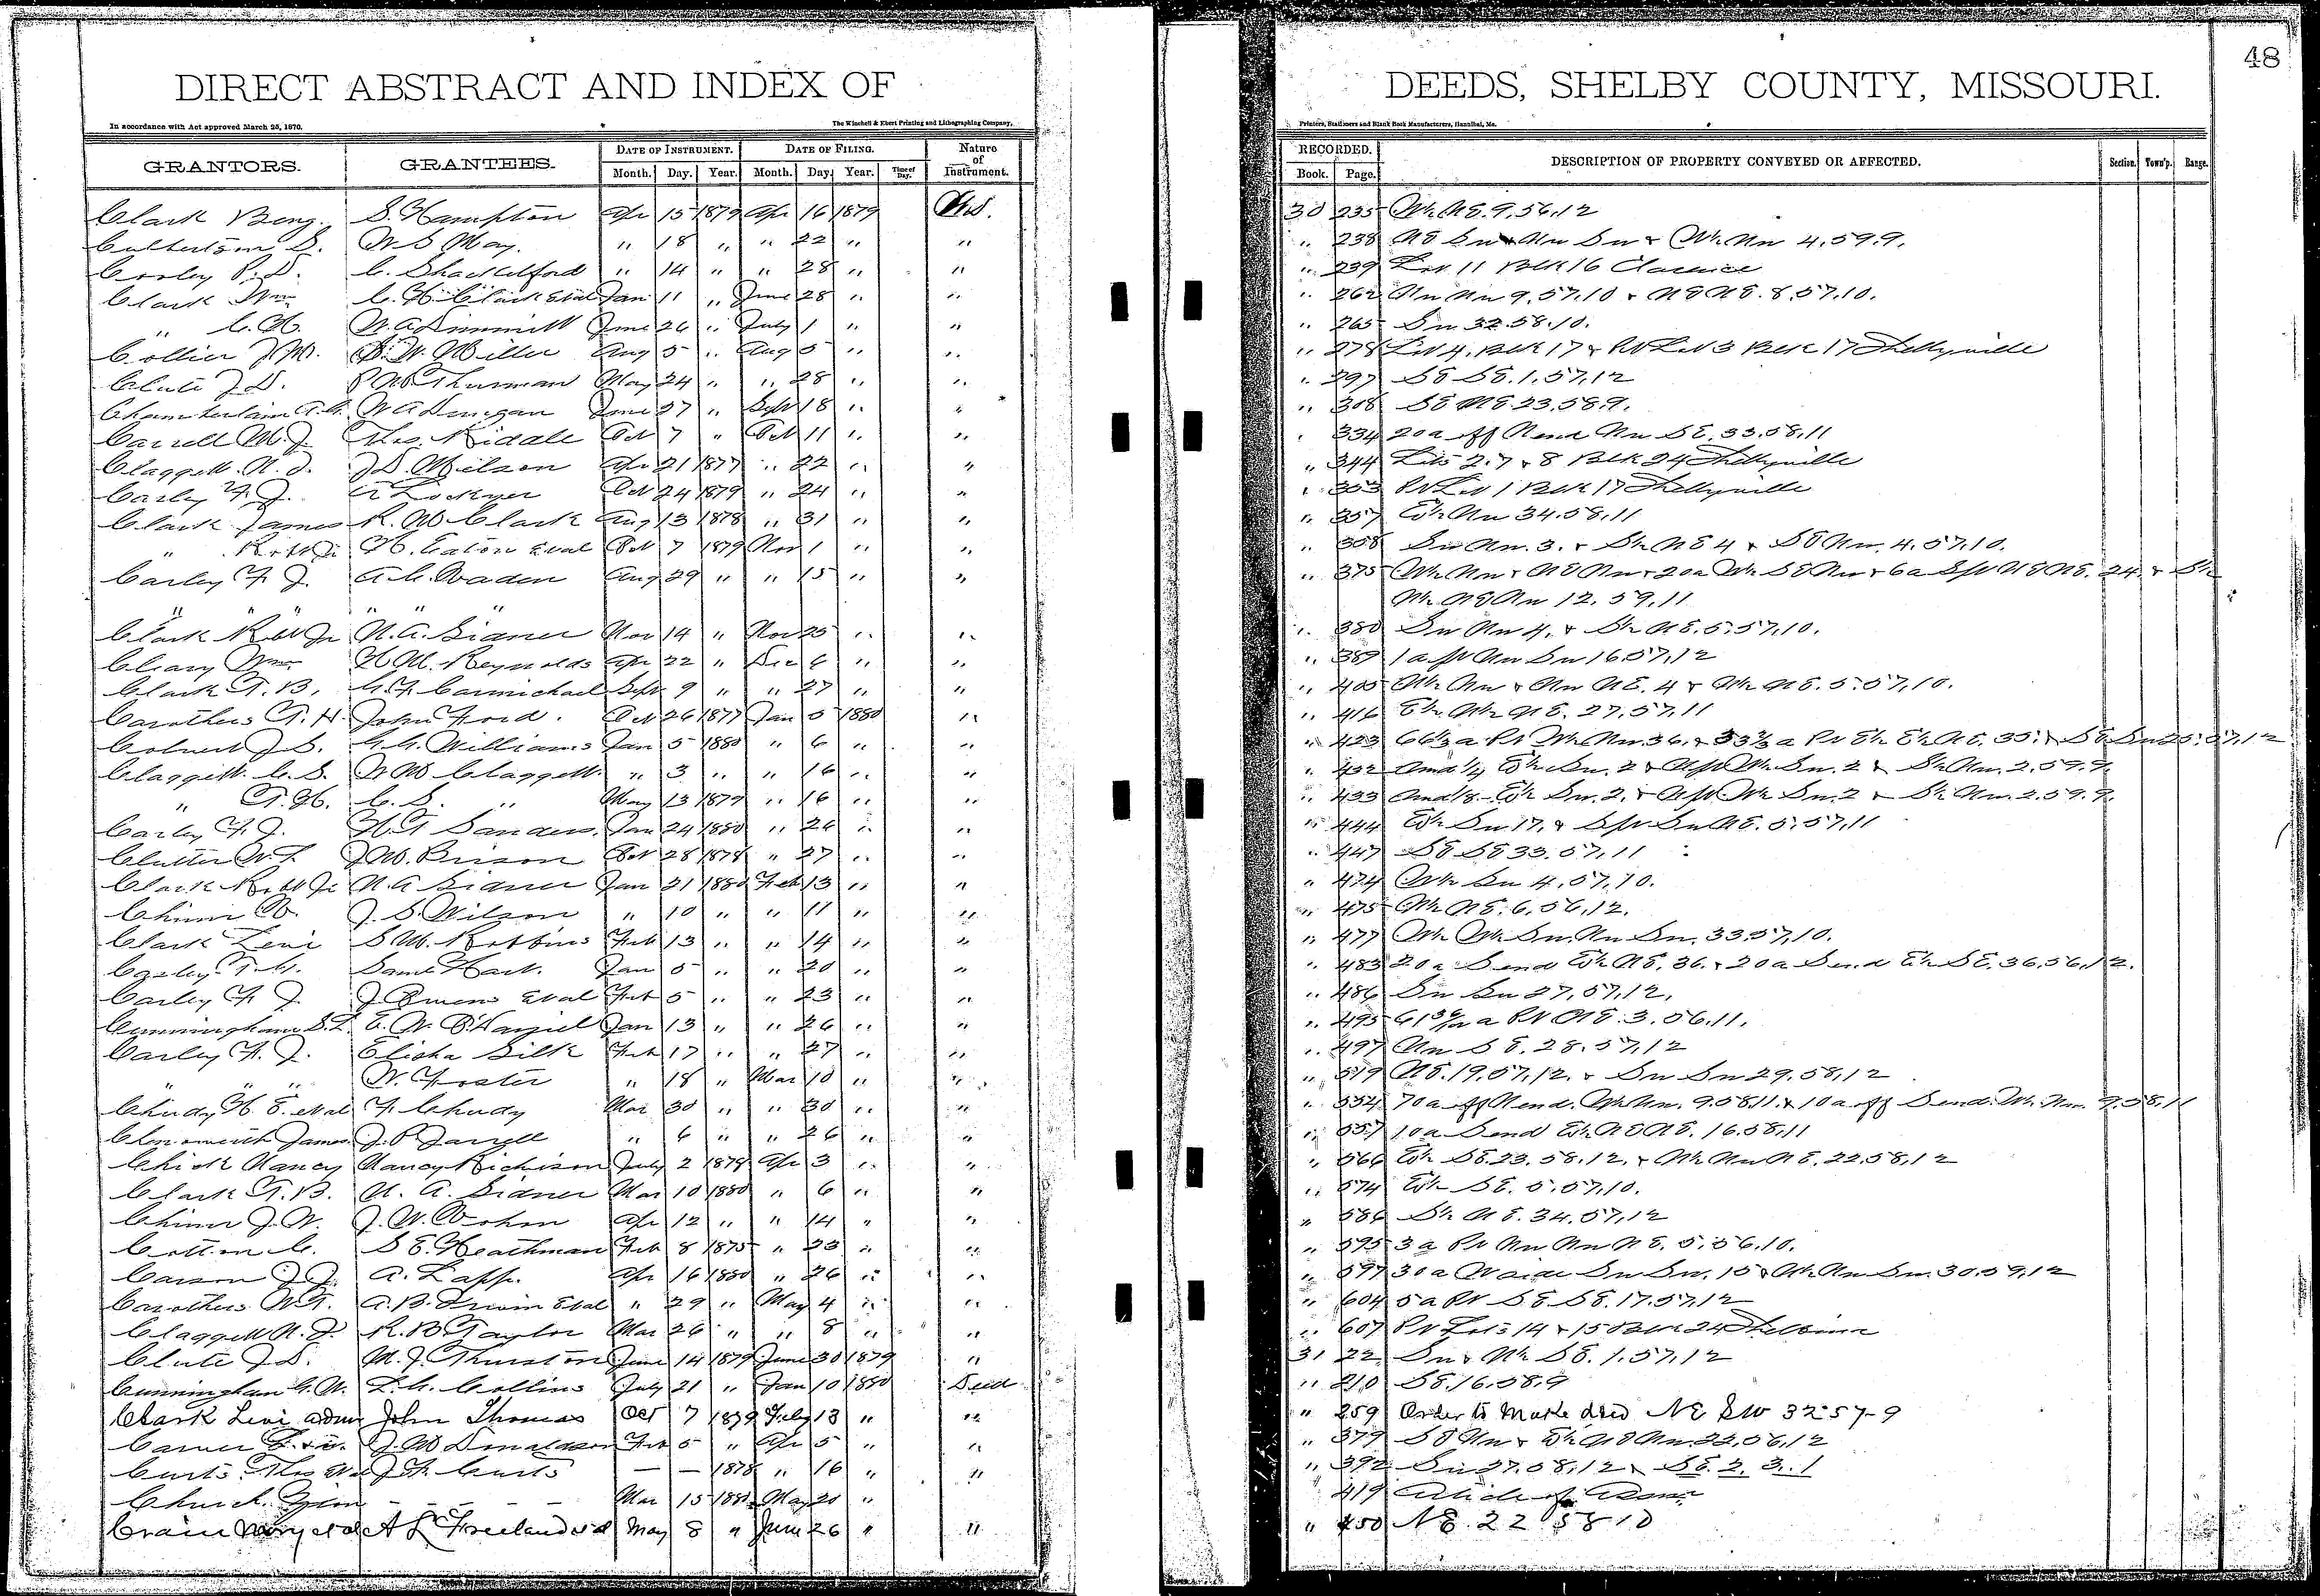 48
DIRECT ABSTRACT AND INDEX OF DEEDS, SHELBY COUNTY, MISSOURI.
In accordance with Act approved March 25, 1870. The Winchell & Ebert Printing and Lithographing Company, Printers, Stationers and Blank Book Manufacturers, Hannibal, Mo.
GRANTORS. GRANTEES. DATE OF INSTRUMENT. DATE OF FILING. Nature of Instrument. RECORDED. DESCRIPTION OF PROPERTY CONVEYED OR AFFECTED. Section. Town'p. Range.
Month. Day. Year. Month. Day. Year. Time of Day. Book. Page.
Clark Benj. S. Hampton Apr 15 1879 Apr 16 1879 30 235 Wh NE. 9.56.12
Culbertson S. W S May. " 18 " " 22 " " " 238 NE Sw & Nw Sw & Wh Nw 4.59.9.
C. Shackelford " 14 " " 28 " " " 239 Lot 11 Blk 16 Clarence
Clark Wm C. H. Clark Etal Jan 11 " June 28 " " " 262 Nw Nw 9.57.10 & NE NE. 8.57.10.
" C. H. June 26 " July 1 " " " 265 Sw 32.58.10.
Collier J. M. S. W. Miller Aug 5 " Aug 5 " " " 278 Lot 4. Blk 17 & Pt Lot 3 Blk 17 Shelbyville
Clute J. D. Thurman May 24 " " 28 " " " 297 SE SE. 1.57.12
Chamberlain A. G. W A Dunigan June 27 " Sept 18 " " " 308 SE NE. 23.58.9.
Carrell M. J. Thos. Riddle Oct 7 " Oct 11 " " " 334 20 a off N end Nw SE. 33.58.11
Claggett. N. J. J. D. Wilson Apr 21 1877 " 22 " " " 344 Lots 2.7 & 8 Blk 24 Shelbyville
Carley F. J. A Lockyer Oct 24 1879 " 24 " " " 353 Pt Lot 1 Blk 17 Shelbyville
Clark James R. M Clark Aug 13 1878 " 31 " " " 357 Eh Nw 34.58.11
" Robt Jr H. Eaton Etal Oct 7 1879 Nov 1 " " " 358 Sw Nw. 3. & Sh NE 4 & SE Nw. 4.57.10.
Carley F. J. A. C. Vaden Aug 29 " " 15 " " " 375 Wh Nw & NE Nw & 20a Wh SE Nw & 6a NE NE. 24. & Sh
" " " " " " Wh NE Nw 12.59.11
Clark Robt Jr N. A. Sidner Nov 14 " Nov 25 " " " 380 Sw Nw 4. & Sh NE. 5.57.10.
Cleary Wm H M. Reynolds Apr 22 " Dec 6 " " " 389 1 a pt Nw Sw 16.57.12
Clark T. B. G. F. Carmichael Sept 9 " " 27 " " " 405 Wh Nw & Nw NE. 4 & Wh NE. 5.57.10.
Carothers T. H. John Ford. Oct 26 1877 Jan 5 1880 " " 416 Eh Wh NE. 27.57.11
J. S. G. G. Williams Jan 5 1880 " 6 " " " 423 66⅔ a Pt Wh Nw. 36. & 33⅓ a Pt Eh Eh NE. 35. & SE Sw 25.57.12
Claggett. C. S. W M Claggett. " 3 " " 16 " " " 432 Und ¼ Eh Sw. 2 & Wh Sw. 2 & Sh Nw. 2.59.9.
" T. H. C. S. " May 13 1879 " 16 " " " 433 Und ⅛ Eh Sw. 2. & Wh Sw. 2 & Sh Nw. 2.59.9.
Carley F. J. H T Sanders. Jan 24 1880 " 26 " " " 444 Eh Sw 17. & Sw NE. 5.57.11
Clutter W. L. J M. Brison Oct 28 1878 " 27 " " " 447 SE SE 33.57.11
Clark Robt Jr N. A Sidner Jan 21 1880 Feb 13 " " " 474 Wh Sw 4.57.10.
Chinn J. S. Wilson " 10 " " 11 " " " 475 Wh NE. 6.56.12.
Clark Levi S M. Robbins Feb 13 " " 14 " " " 477 Wh Wh Sw. Nw Sw. 33.57.10.
Saml Hart. Jan 5 " " 20 " " " 483 20 a S end Eh NE. 36. & 20 a S end Eh SE. 36.56.12.
Carley F. J. J. Owens Etal Feb 5 " " 23 " " " 486 Sw Sw 27.57.12.
Cunningham S. L. E. W. O'Daniel Jan 13 " " 26 " " " 495 a Pt NE. 3.56.11.
Carley F. J. Elisha Silk Feb 17 " " 27 " " " 497 Nw SE. 28.57.12
" " " W. Foster " 18 " Mar 10 " " " 519 NE. 19.57.12. & Sw Sw 29.58.12
Chudy H. E. etal F. Chudy Mar 30 " " 30 " " " 554 70 a off N end. Wh Nw. 9.58.11. & 10 a off S end. Wh Nw. 9.58.11
James J. P. Jarrell " 6 " " 26 " " " 557 10 a S end Eh NE NE. 16.58.11
Chick Nancy Nancy Richison July 2 1879 Apr 3 " " " 566 Eh SE. 23.58.12. & Wh Nw NE. 22.58.12
Clark T. B. N. A. Sidner Mar 10 1880 " 6 " " " 574 Eh SE. 5.57.10.
Chinn J. W. J. W. Apr 12 " " 14 " " " 586 Sh NE. 34.57.12
Cotton C. S E. Heathman Feb 8 1875 " 23 " " " 595 3 a Pt Nw Nw NE. 5.56.10.
Carson J. J. A. Lapp. Apr 16 1880 " 26 " " " 597 30 a W side Sw Sw. 15 & Wh Nw Sw. 30.59.12
Carothers W. T. A. B. Irwin Etal " 29 " May 4 " " " 604 5 a Pt SE SE. 17.57.12
Claggett N. J. R. B Taylor Mar 26 " " 8 " " " 607 Pt Lots 14 & 15 Blk 24 Shelbina
Clute J. D. M. J. Thurston June 14 1879 June 30 1879 " 31 22 Sw & Wh SE. 1.57.12
Cunningham G. W. L. C. Collins July 21 " Jan 10 1880 Deed " 210 SE. 16.58.9
Clark Levi admr John Thomas Oct 7 1879 Feby 13 " " " 259 Order to Make deed NE SW 32 57-9
J. M Donaldson Feb 5 " Apr 5 " " " 379 SE Nw & Eh NE Nw. 22.56.12
Curts Thos Etal J. F. Curts — — 1878 " 16 " " " 392 Sw 27.58.12 & SE. 2. 3. 1
Church Zion - - - - Mar 15 1880 May 20 " 419 Article of
Crain Mary etal A L Freeland May 8 " June 26 " " " 450 NE. 22 58 10